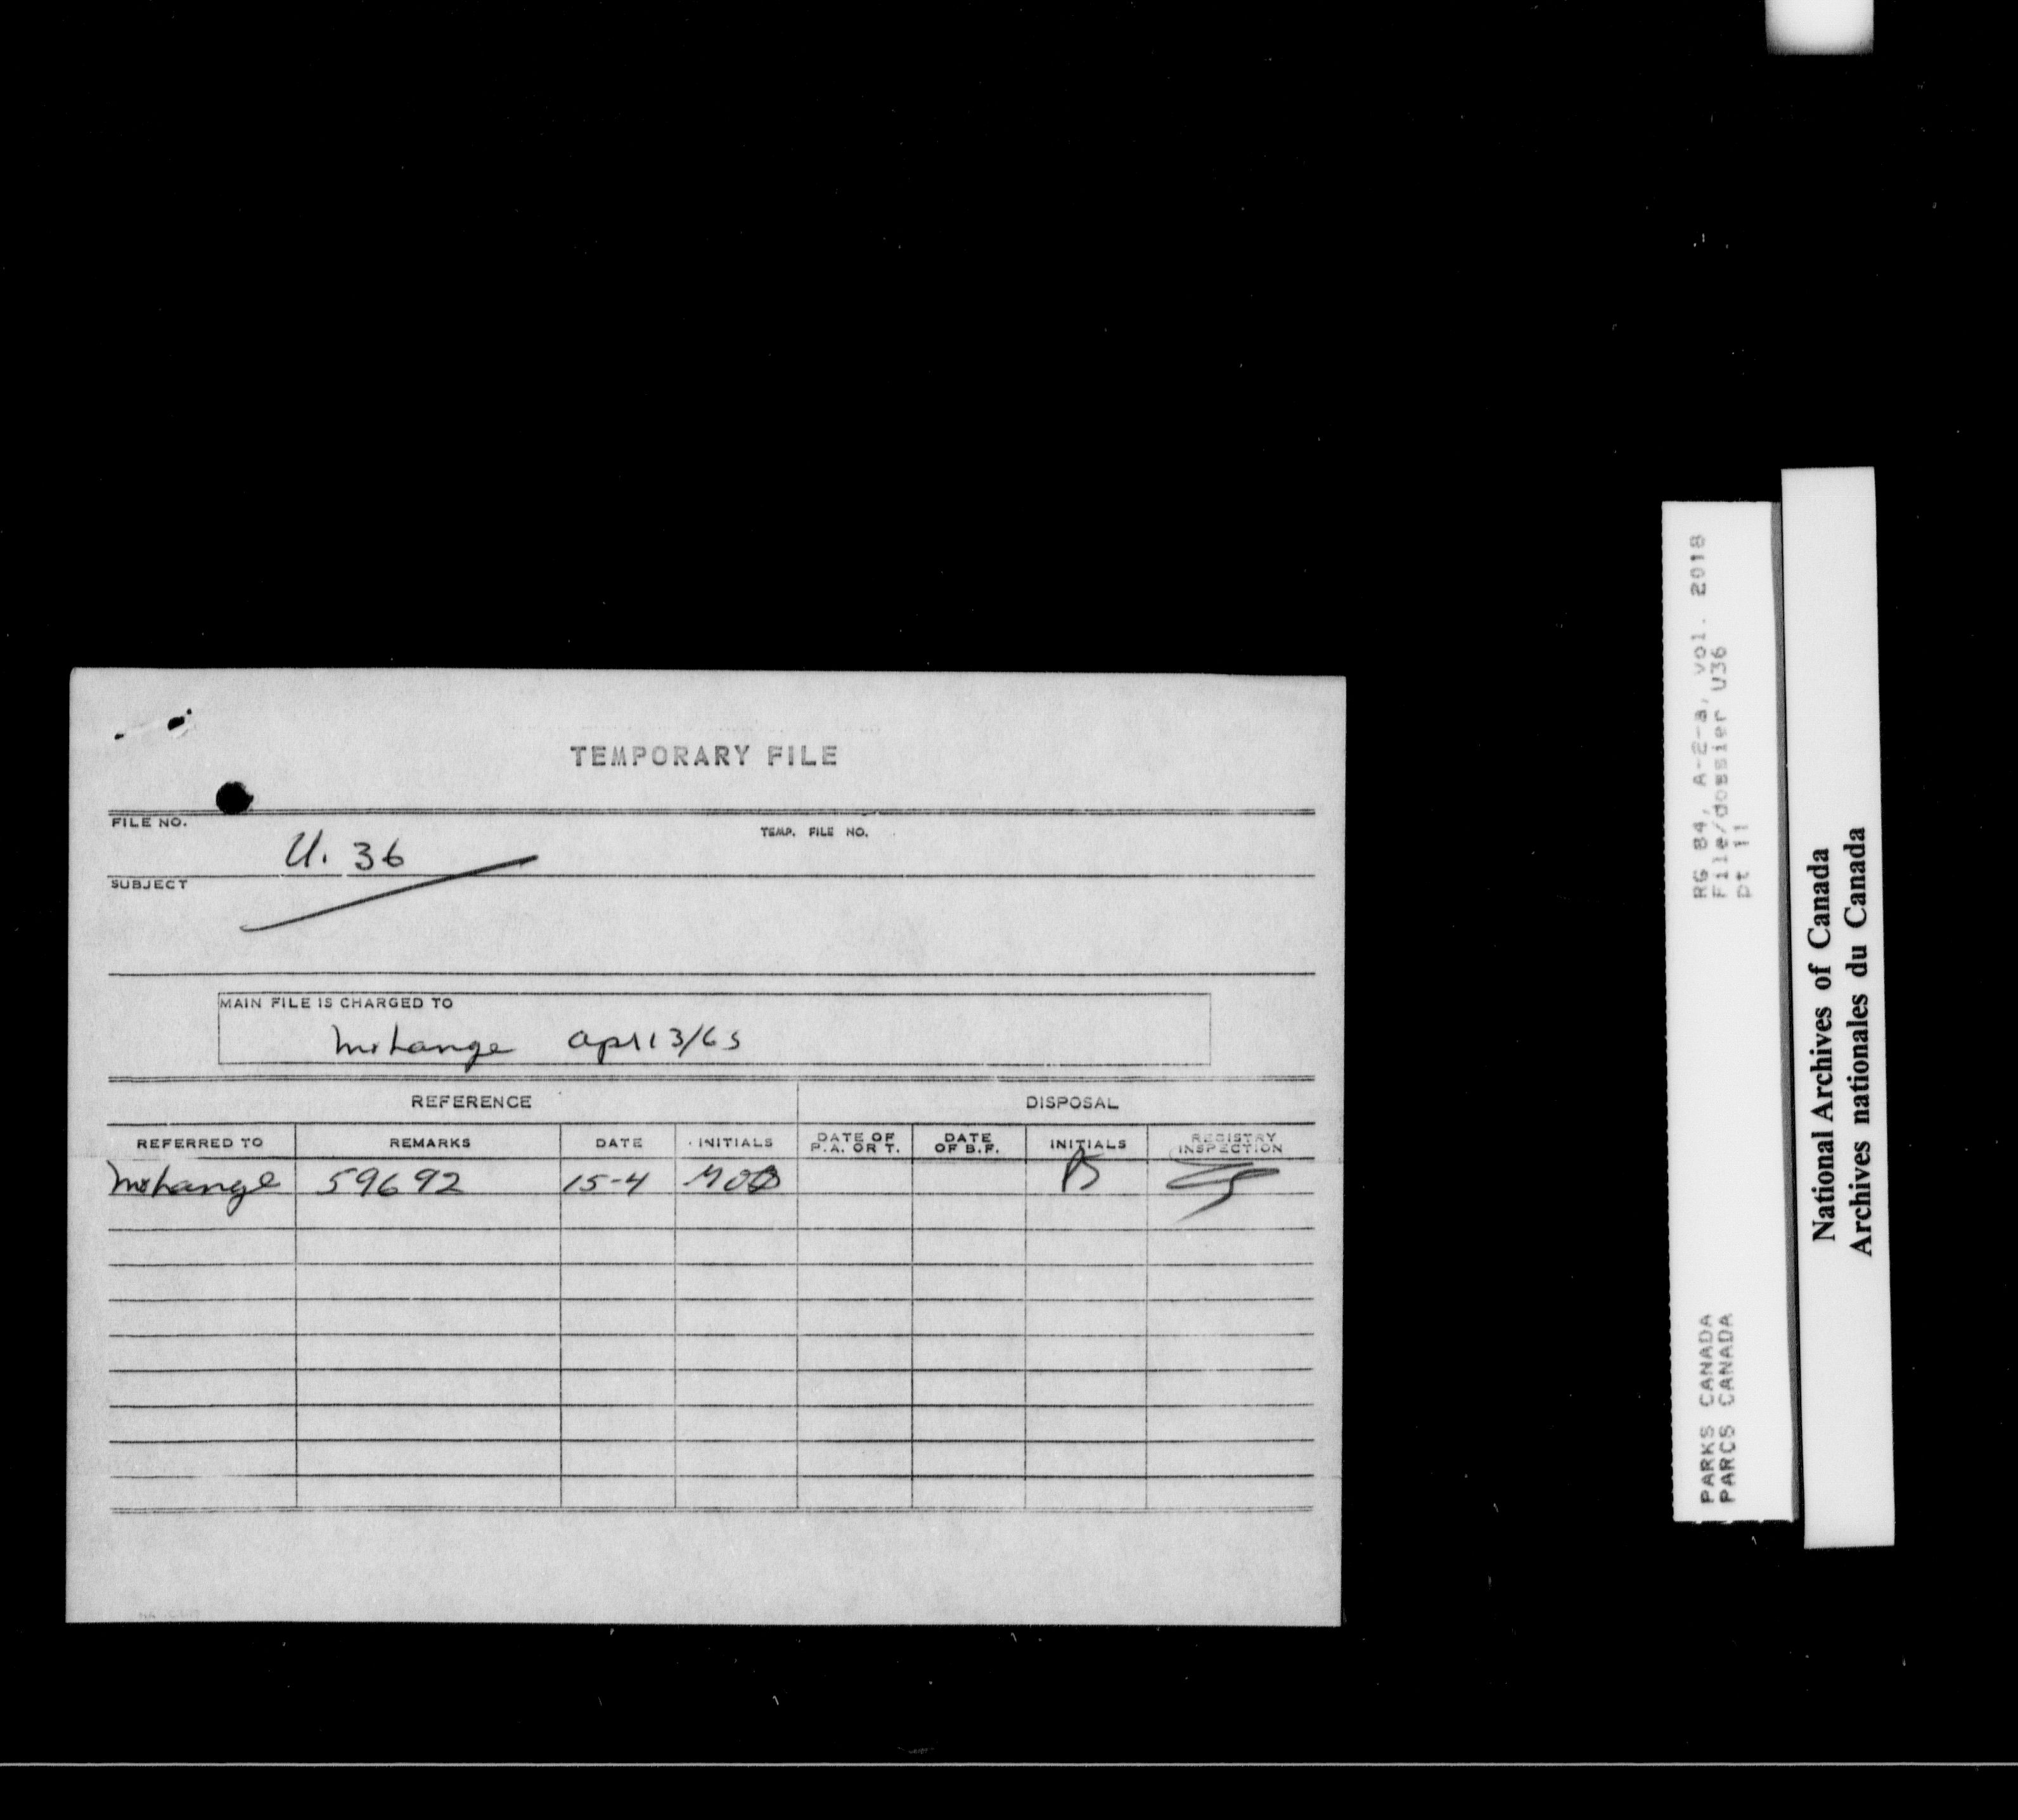 TEMPORARY FILE
FILE NO. U. 36 TEMP. FILE NO.
SUBJECT
MAIN FILE IS CHARGED TO
Mr Lange Apr 13/65
REFERENCE DISPOSAL
REFERRED TO REMARKS DATE INITIALS DATE OF P.A. OR T. DATE OF B.F. INITIALS REGISTRY INSPECTION
Mr Lange 59692 15-4
RG 84, A-2-a, vol. 2018
File/dossier U36
pt 11
PARKS CANADA
PARCS CANADA
National Archives of Canada
Archives nationales du Canada